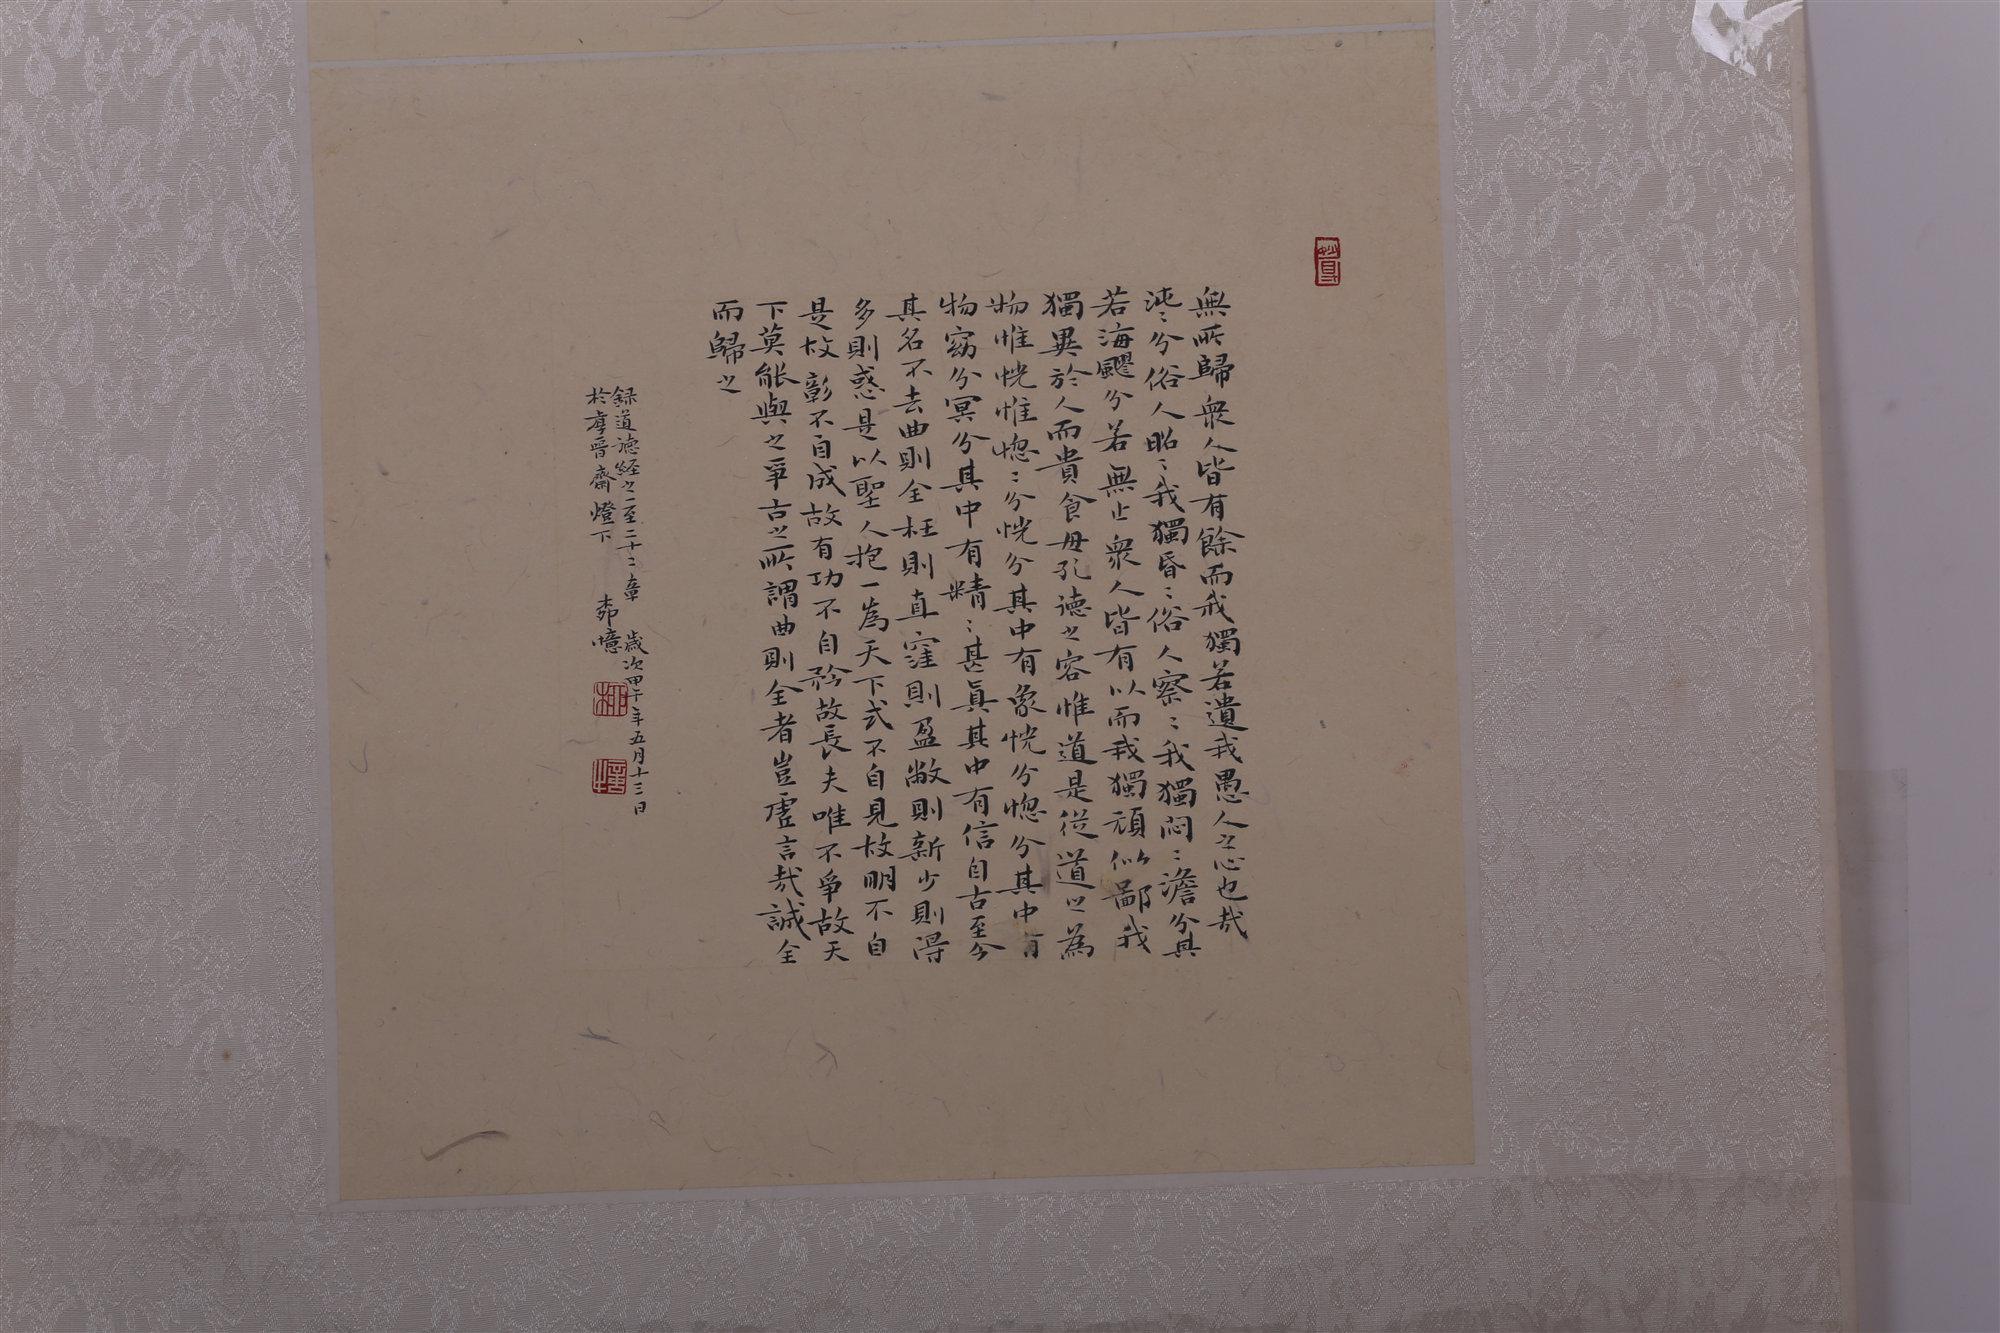 無所歸衆人皆有餘而我獨若遺我愚人之心也哉
沌〻兮俗人昭〻我獨昏〻俗人察〻我獨悶〻澹兮其
若海飂兮若無止衆人皆有以而我獨頑似鄙我
獨異於人而貴食母孔德之容惟道是從道之為
物惟恍惟惚〻兮恍兮其中有象恍兮惚兮其中有
物窈兮冥兮其中有精〻甚真其中有信自古至今
其名不去曲則全枉則直窪則盈敝則新少則得
多則惑是以聖人抱一為天下式不自見故明不自
是故彰不自成故有功不自矜故長夫唯不爭故天
下莫能與之爭古之所謂曲則全者豈虛言哉誠全
而歸之
録道德經之一至二十二章 歲次甲午年五月十三日
於 晉齋燈下 憶